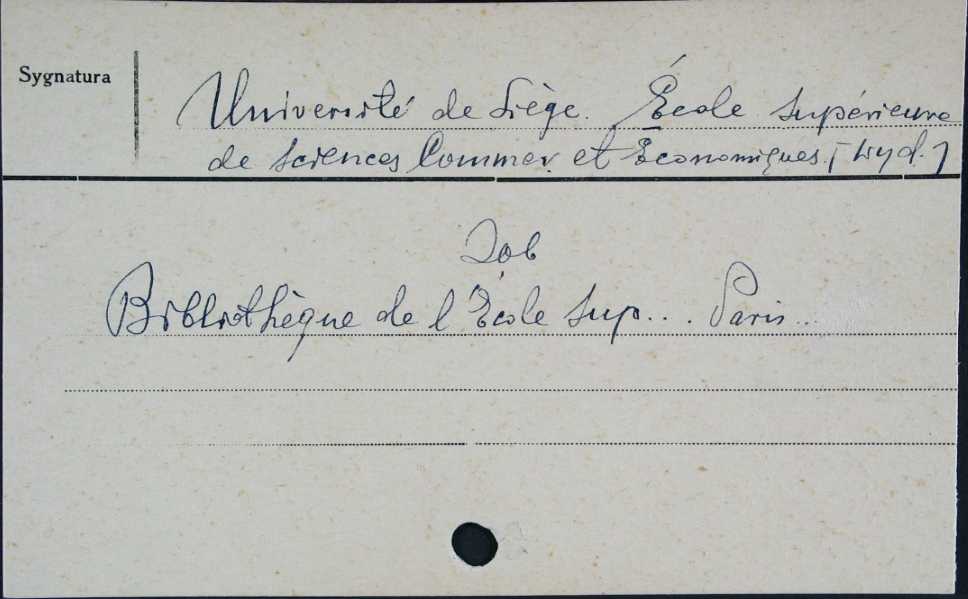 Sygnatura
Université de Liège. École supérieure
de sciences Commer. et Économiques. [wyd.]
Zob
Bibliothèque de l'École sup... Paris..